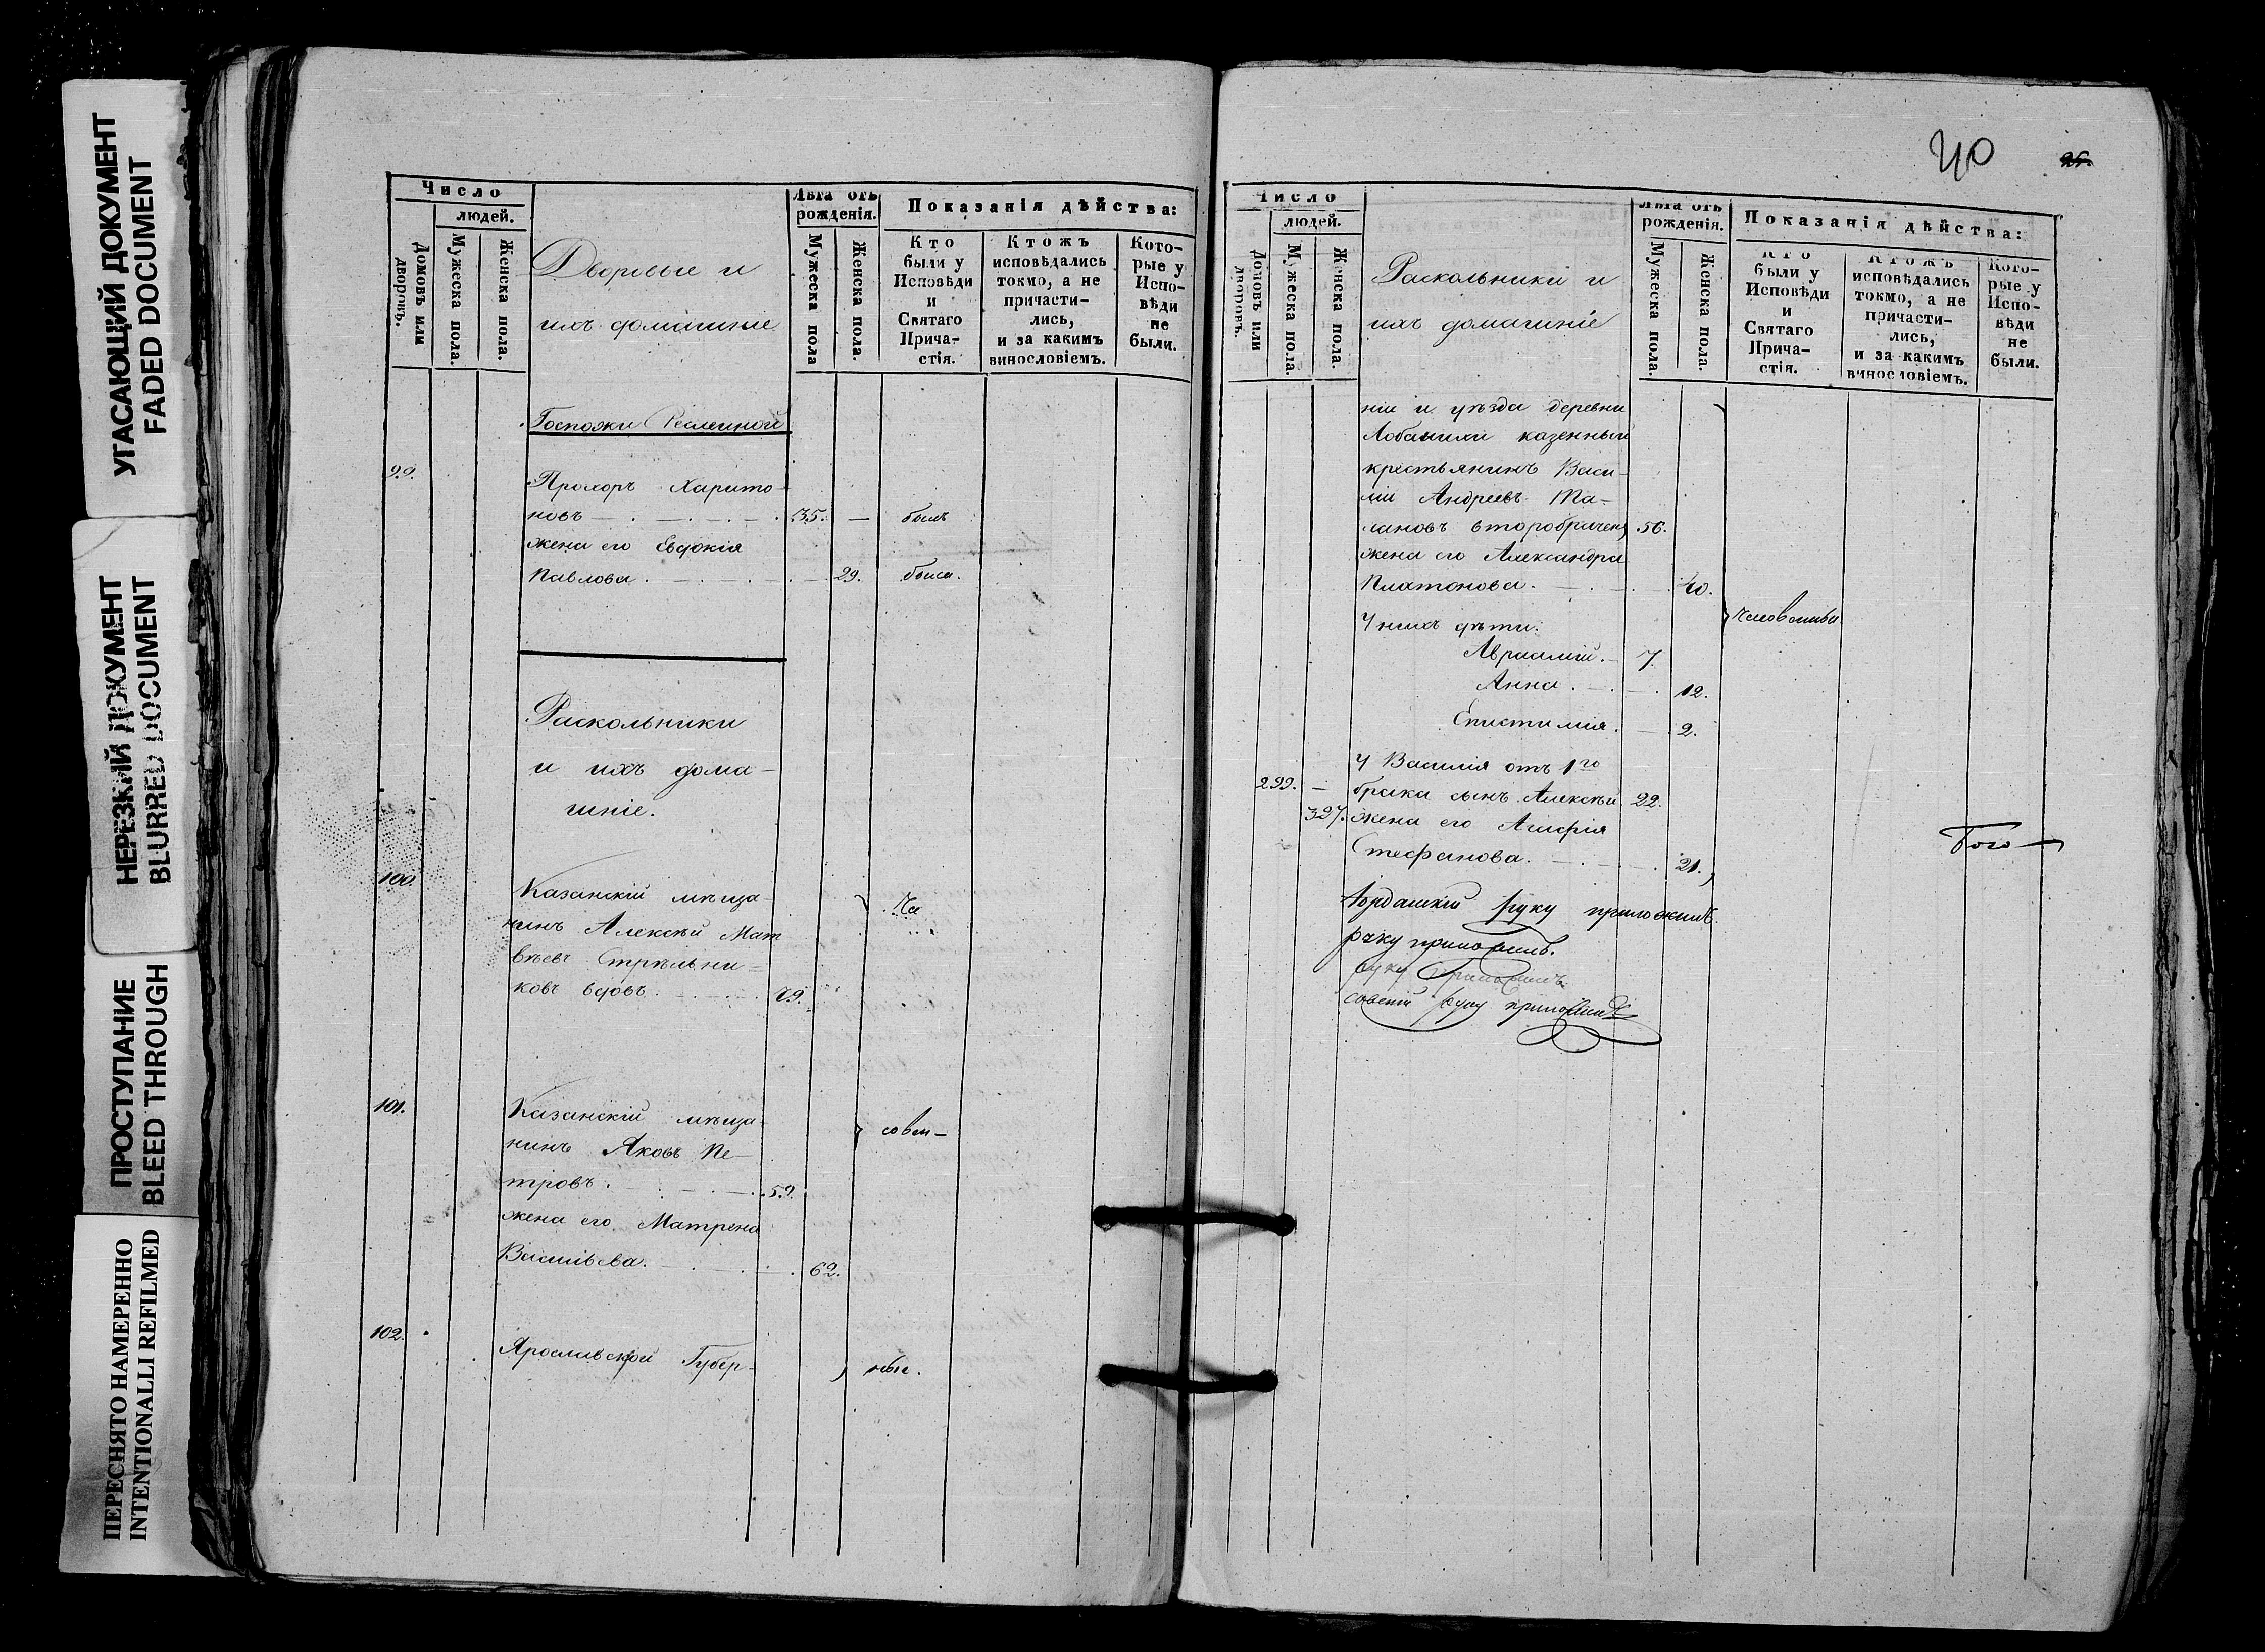 УГАСАЮЩИЙ ДОКУМЕНТ
FADED DOCUMENT
НЕРЕЗКИЙ ДОКУМЕНТ
BLURRED DOCUMENT
ПРОСТУПАНИЕ
BLEED THROUGH
ПЕРЕСНЯТО НАМЕРЕННО
INTENTIONALLI REFILMED
Число
людей.
Домовъ или дворовъ.
Мужеска пола.
Женска пола.
Дворовые и
ихъ домашніе
Лѣта отъ
рожденія.
Мужеска пола
Женска пола.
Показанія дѣйства:
Кто
были у
Исповѣди
и
Святаго
Прича-
стія.
Ктожъ
исповѣдались
токмо, а не
причасти-
лись,
и за какимъ
винословіемъ.
Кото-
рые у
Испо-
вѣди
не
были.
Госпожи
99.
Прохоръ Харито-
новъ 35. — былъ
жена его Евдокія
Павлова. 29. была.
Раскольники
и ихъ дома-
шніе.
100.
Казанскій мѣща-
нинъ Алексѣй Мат
вѣевъ Стрѣльни-
ковъ вдовъ. 79.
На
101.
Казанскій мѣща-
нинъ Яковъ Пе-
тровъ. 59.
жена его Матрена
Васильева. 62.
102.
Ярославской Губер-
40
Число
людей.
Домовъ или дворовъ.
Мужеска пола.
Женска пола.
Раскольники и
ихъ домашніе
Лѣта отъ
рожденія.
Мужеска пола.
Женска пола.
Показанія дѣйства:
Кто
были у
Исповѣди
и
Святаго
Прича-
стія.
Ктожъ
исповѣдались
токмо, а не
причасти-
лись,
и за какимъ
винословіемъ.
Кото-
рые у
Испо-
вѣди
не
были.
ніи и уѣзда деревни
Лобанихи казенный
крестьянинъ Васи-
лій Андреевъ Та-
лановъ второбрачен, 56.
жена его Александра
Платонова. 40.
У нихъ дѣти:
Авраамій. 7.
Анна. 12.
Епистимія. 2.
У Василія отъ 1го
299. — брака сынъ Алексѣй 22.
327. жена его Агафія
Стефанова. 21.
руку приложилъ
руку приложилъ.
руку приложилъ
руку приложилъ